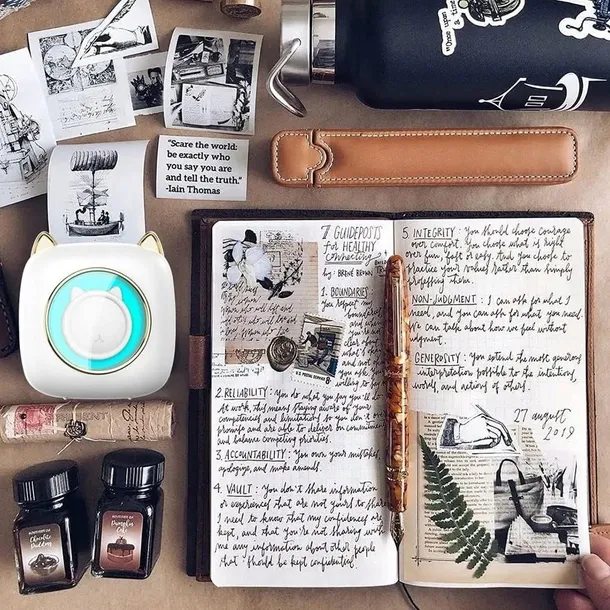 "Once upon a time
"Scare the world:
be exactly who
you say you are
and tell the truth."
-Iain Thomas
7 GUIDEPOSTS
for HEALTHY
connecting
by: BRENÉ BROWN
1. BOUNDARIES:
You respect my
boundaries
and when
you're
clear about
what's
okay and
not okay,
you ask.
willing to say
2. RELIABILITY: You do what you say you'll do.
At work, this means staying aware of your
competencies and limitations so you don't over
promise and are able to deliver on commitments
and balance competing priorities.
3. ACCOUNTABILITY: You own your mistakes,
apologize, and make amends.
4. VAULT: You don't share information
or experiences that are not yours to share.
I need to know that my confidences are
kept, and that you're not sharing with
me any information about other people
that should be kept confidential.
5. INTEGRITY: You should choose courage
over comfort. You choose what is right
over fun, fast or easy. And you choose to
practice your values rather than simply
professing them.
NON-JUDGMENT: I can ask for what I
need, and you can ask for what you need.
We can talk about how we feel without
judgment.
GENEROSITY: You extend the most generous
interpretation possible to the intentions,
words, and actions of others.
27 august
2019
Chocolate
Pudding
Pumpkin
Cake